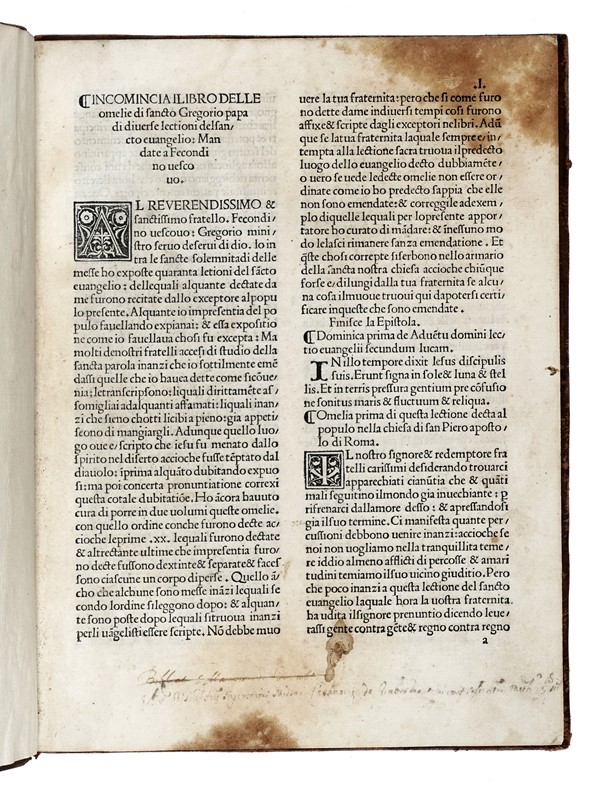 .I.
¶INCOMINCIA ILIBRO DELLE
omelie di sancto Gregorio papa
di diuerse lectioni delsan/
cto euangelio: Man
date a Fecondi
no uesco
uo.
AL REVERENDISSIMO &
sanctissimo fratello. Fecondi/
no uescouo: Gregorio mini/
stro seruo deserui di dio. Io in
tra le sancte solemnitadi delle
messe ho exposte quaranta letioni del sācto
euangelio: dellequali alquante dectate da
me furono recitate dallo exceptore alpopu
lo presente. Alquante io impresentia del po
pulo fauellando expianai: & essa expositio
ne come io fauellaua chosi fu excepta: Ma
molti denostri fratelli accesi di studio della
sancta parola inanzi che io sottilmente emē
dassi quelle che io hauea dette come sicōue/
nia: letranscripsono: liquali dirittamēte as/
somigliai adalquanti affamati: liquali inan/
zi che sieno chotti licibi a pieno: gia appeti/
scono di mangiargli. Adunque quello luo/
go oue e scripto che iesu fu menato dallo
spirito nel diserto accioche fusse tēptato dal
diauolo: iprima alquāto dubitando expuo
si: ma poi concerta pronuntiatione correxi
questa cotale dubitatiōe. Ho ācora hauuto
cura di porre in due uolumi queste omelie.
con quello ordine conche furono decte ac/
cioche leprime .xx. lequali furono dectate
& altrectante ultime che impresentia furo/
no decte fussono dextinte & separate & faces
sono ciascune un corpo diperse. Quello ā/
cho che alchune sono messe ināzi lequali se
condo lordine sileggono dopo: & alquan/
te sono poste dopo lequali sitruoua inanzi
perli uāgelisti essere scripte. Nō debbe muo
uere la tua fraternita: pero che si come furo
no dette dame indiuersi tempi cosi furono
affixe & scripte dagli exceptori nelibri. Adū
que se latua fraternita laquale sempre e/ in/
tempta alla lectione sacra truoua ilpredecto
luogo dello euangelio decto dubbiamēte/
o uero se uede ledecte omelie non essere or/
dinate come io ho predecto sappia che elle
non sono emendate: & correggile adexem/
plo diquelle lequali per lopresente appor/
tatore ho curato di mādare: & inessuno mo
do lelasci rimanere sanza emendatione. Et
q̄ste chosi correpte siserbono nello armario
della sancta nostra chiesa accioche chiūque
forse e/ dilungi dalla tua fraternita se alcu/
na cosa ilmuoue truoui qui dapotersi certi/
ficare inqueste che sono emendate.
Finisce la Epistola.
¶Dominica prima de Aduētu domini lec/
tio euangelii secundum lucam.
IN illo tempore dixit Iesus discipulis
suis. Erunt signa in sole & luna & stel
lis. Et in terris pressura gentium pre cōfusio
ne sonitus maris & fluctuum & reliqua.
¶Omelia prima di questa lectione decta al
populo nella chiesa di san Piero aposto/
lo di Roma.
IL nostro signore & redemptore fra
telli carissimi desiderando trouarci
apparechiati cianūtia che & quāti
mali seguitino ilmondo gia inuechiante: p
rifrenarci dallamore desso: & apressandosi
gia ilsuo termine. Ci manifesta quante per/
cussioni debbono uenire inanzi: accioche se
noi non uogliamo nella tranquillita teme/
re iddio almeno afflicti di percosse & amari
tudini temiamo ilsuo uicino giuditio. Pero
che poco inanzi a questa lectione del sancto
euangelio laquale hora la uostra fraternita.
ha udita ilsignore prenuntio dicendo leue/
rassi gente contra gēte & regno contra regno
a